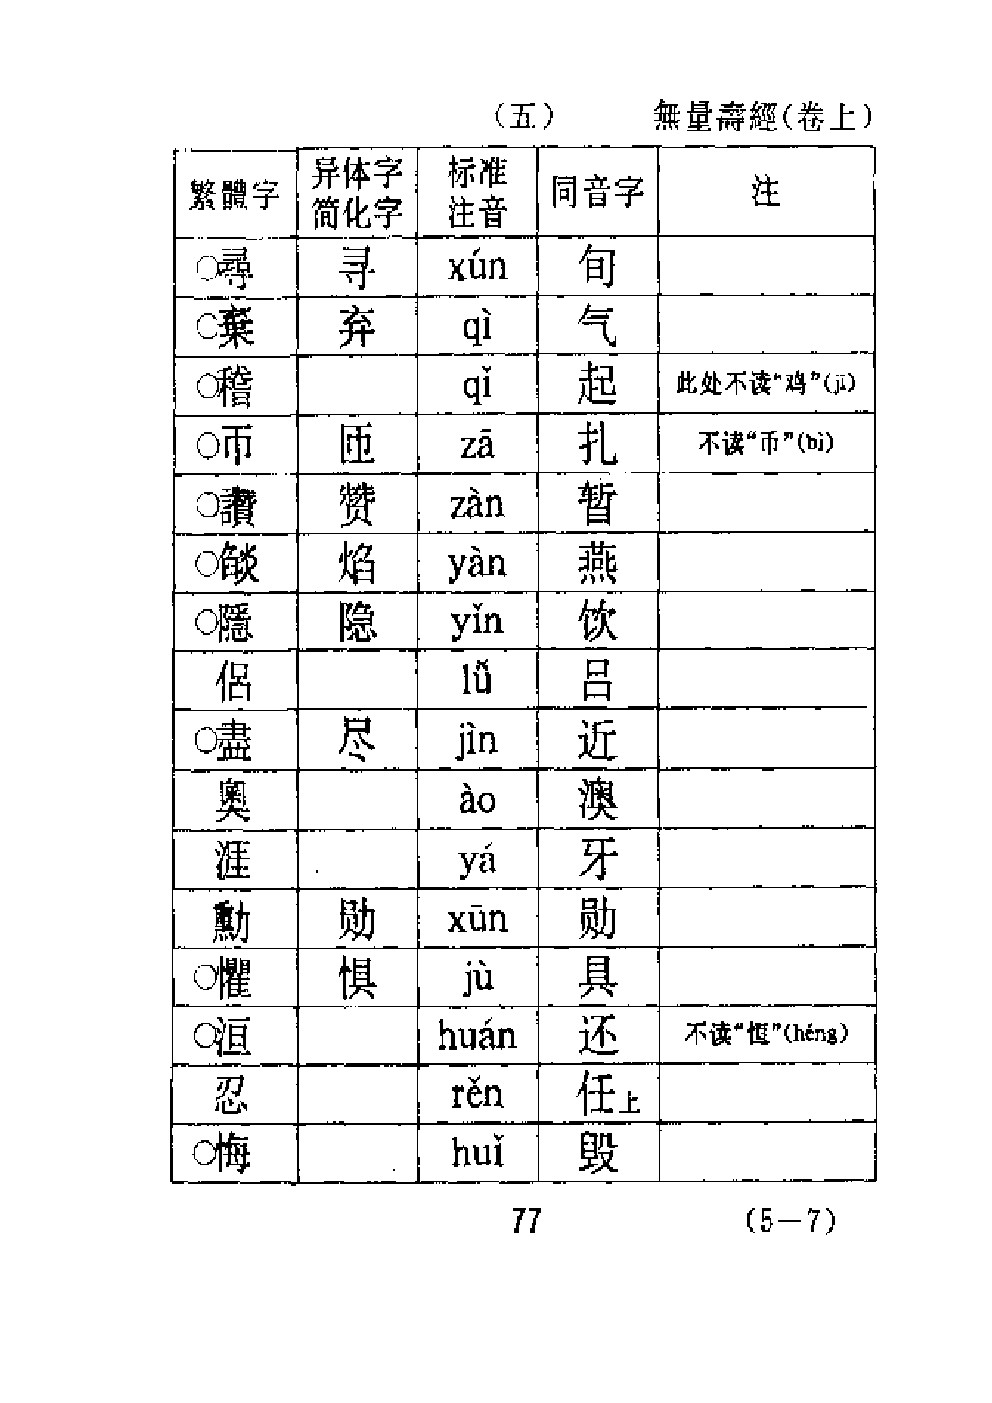 （五）　無量壽經（卷上）
繁體字 异体字简化字 标准注音 同音字 注
○尋 寻 xún 旬
○棄 弃 qì 气
○稽 qǐ 起 此处不读“鸡”(jī)
○帀 匝 zā 扎 不读“币”(bì)
○讚 赞 zàn 暂
○燄 焰 yàn 燕
○隱 隐 yǐn 饮
侶 lǚ 吕
○盡 尽 jìn 近
奧 ào 澳
涯 yá 牙
勳 勋 xūn 勋
○懼 惧 jù 具
○洹 huán 还 不读“恒”(héng)
忍 rěn 任上
○悔 huǐ 毁
77 （5—7）